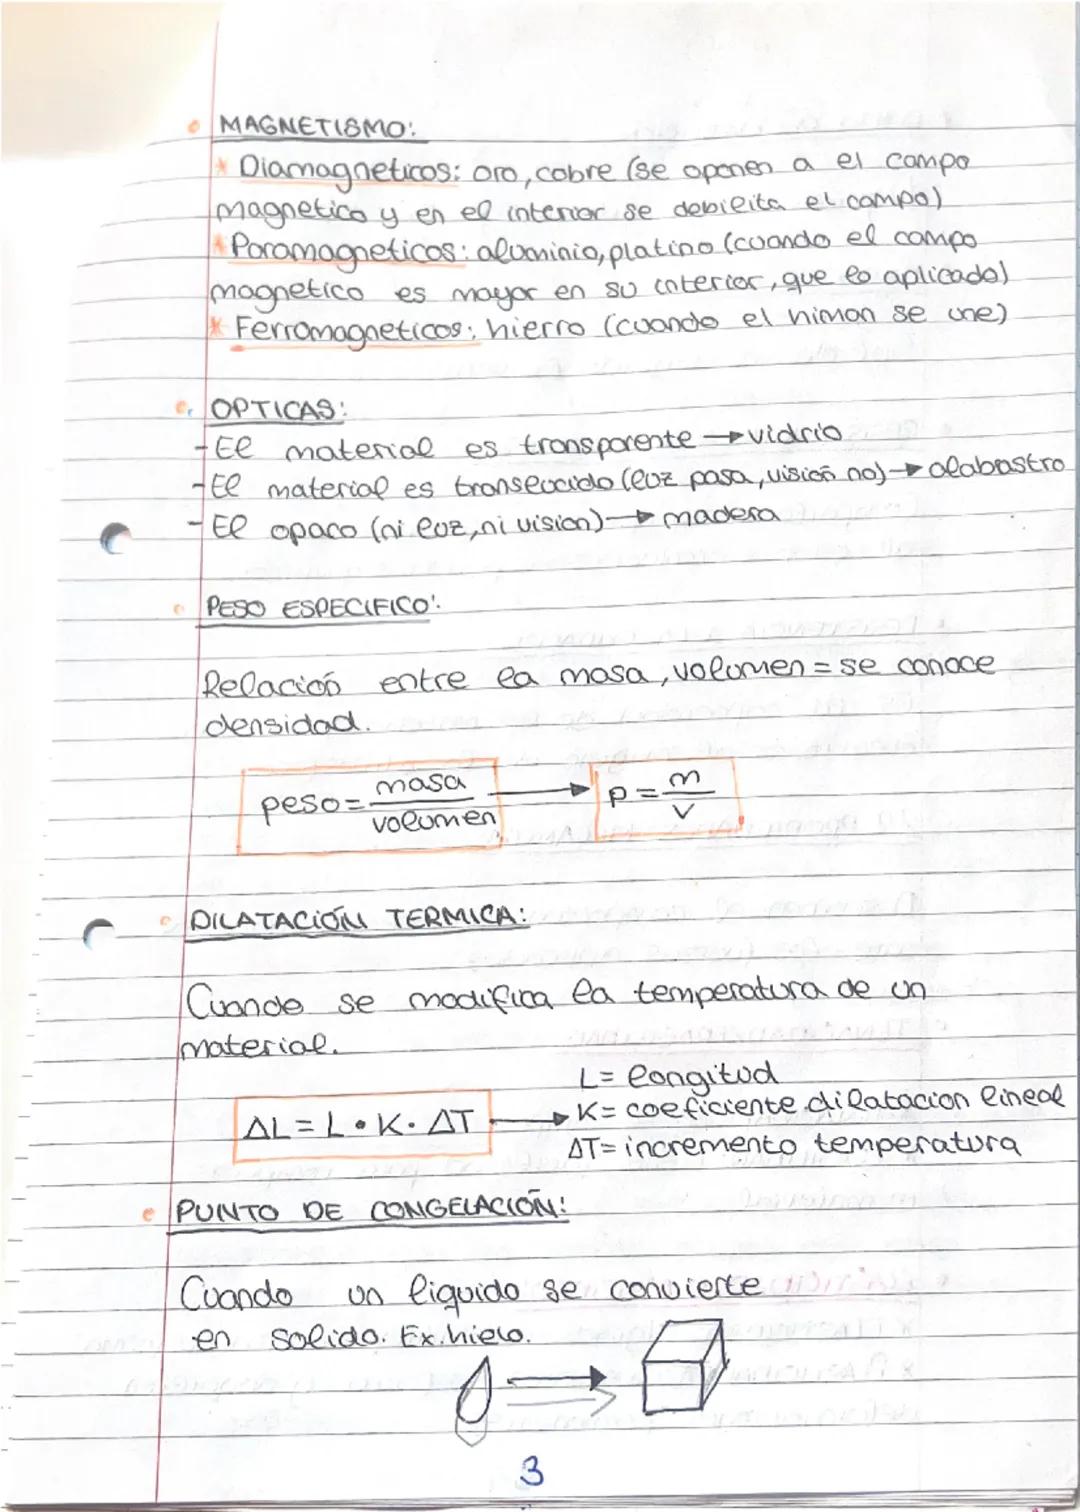 MAGNETISMO:
* Diamagneticos: oro, cobre (se oponen a el campo
magnetico y en el interior se debielita el campo)
* Paramagneticos: aluminio, platino (cuando el campo
magnetico es mayor en su interior, que lo aplicado)
* Ferromagneticos: hierro (cuando el himan se une)
OPTICAS:
- El material es transparente → vidrio
- El material es translucido (luz pasa, visión no) → alabastro
- El opaco (ni luz, ni vision) → madera
PESO ESPECIFICO:
Relación entre la masa, volumen = se conoce
densidad.
peso = masa / volumen → p = m / v
DILATACIÓN TERMICA:
Cuando se modifica la temperatura de un
material.
L = longitud
ΔL = L • K • ΔT → K = coeficiente dilatacion lineal
ΔT = incremento temperatura
PUNTO DE CONGELACIÓN:
Cuando un liquido se convierte
en solido. Ex. hielo.
3